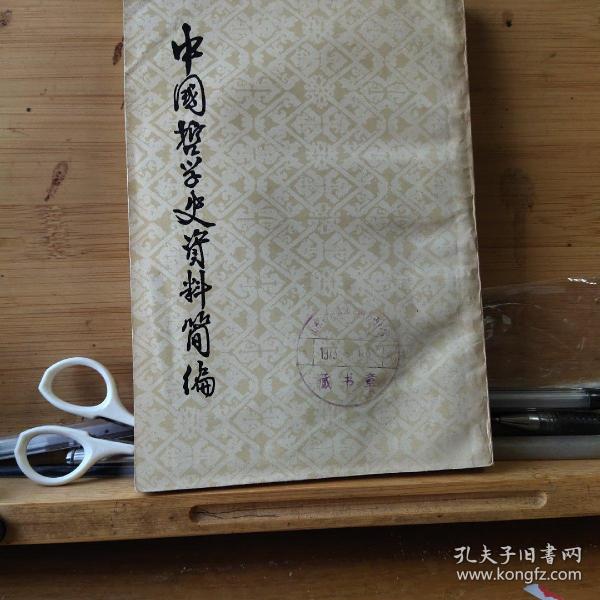 中國哲学史資料简编
藏书章
孔夫子旧書网
www.kongfz.com